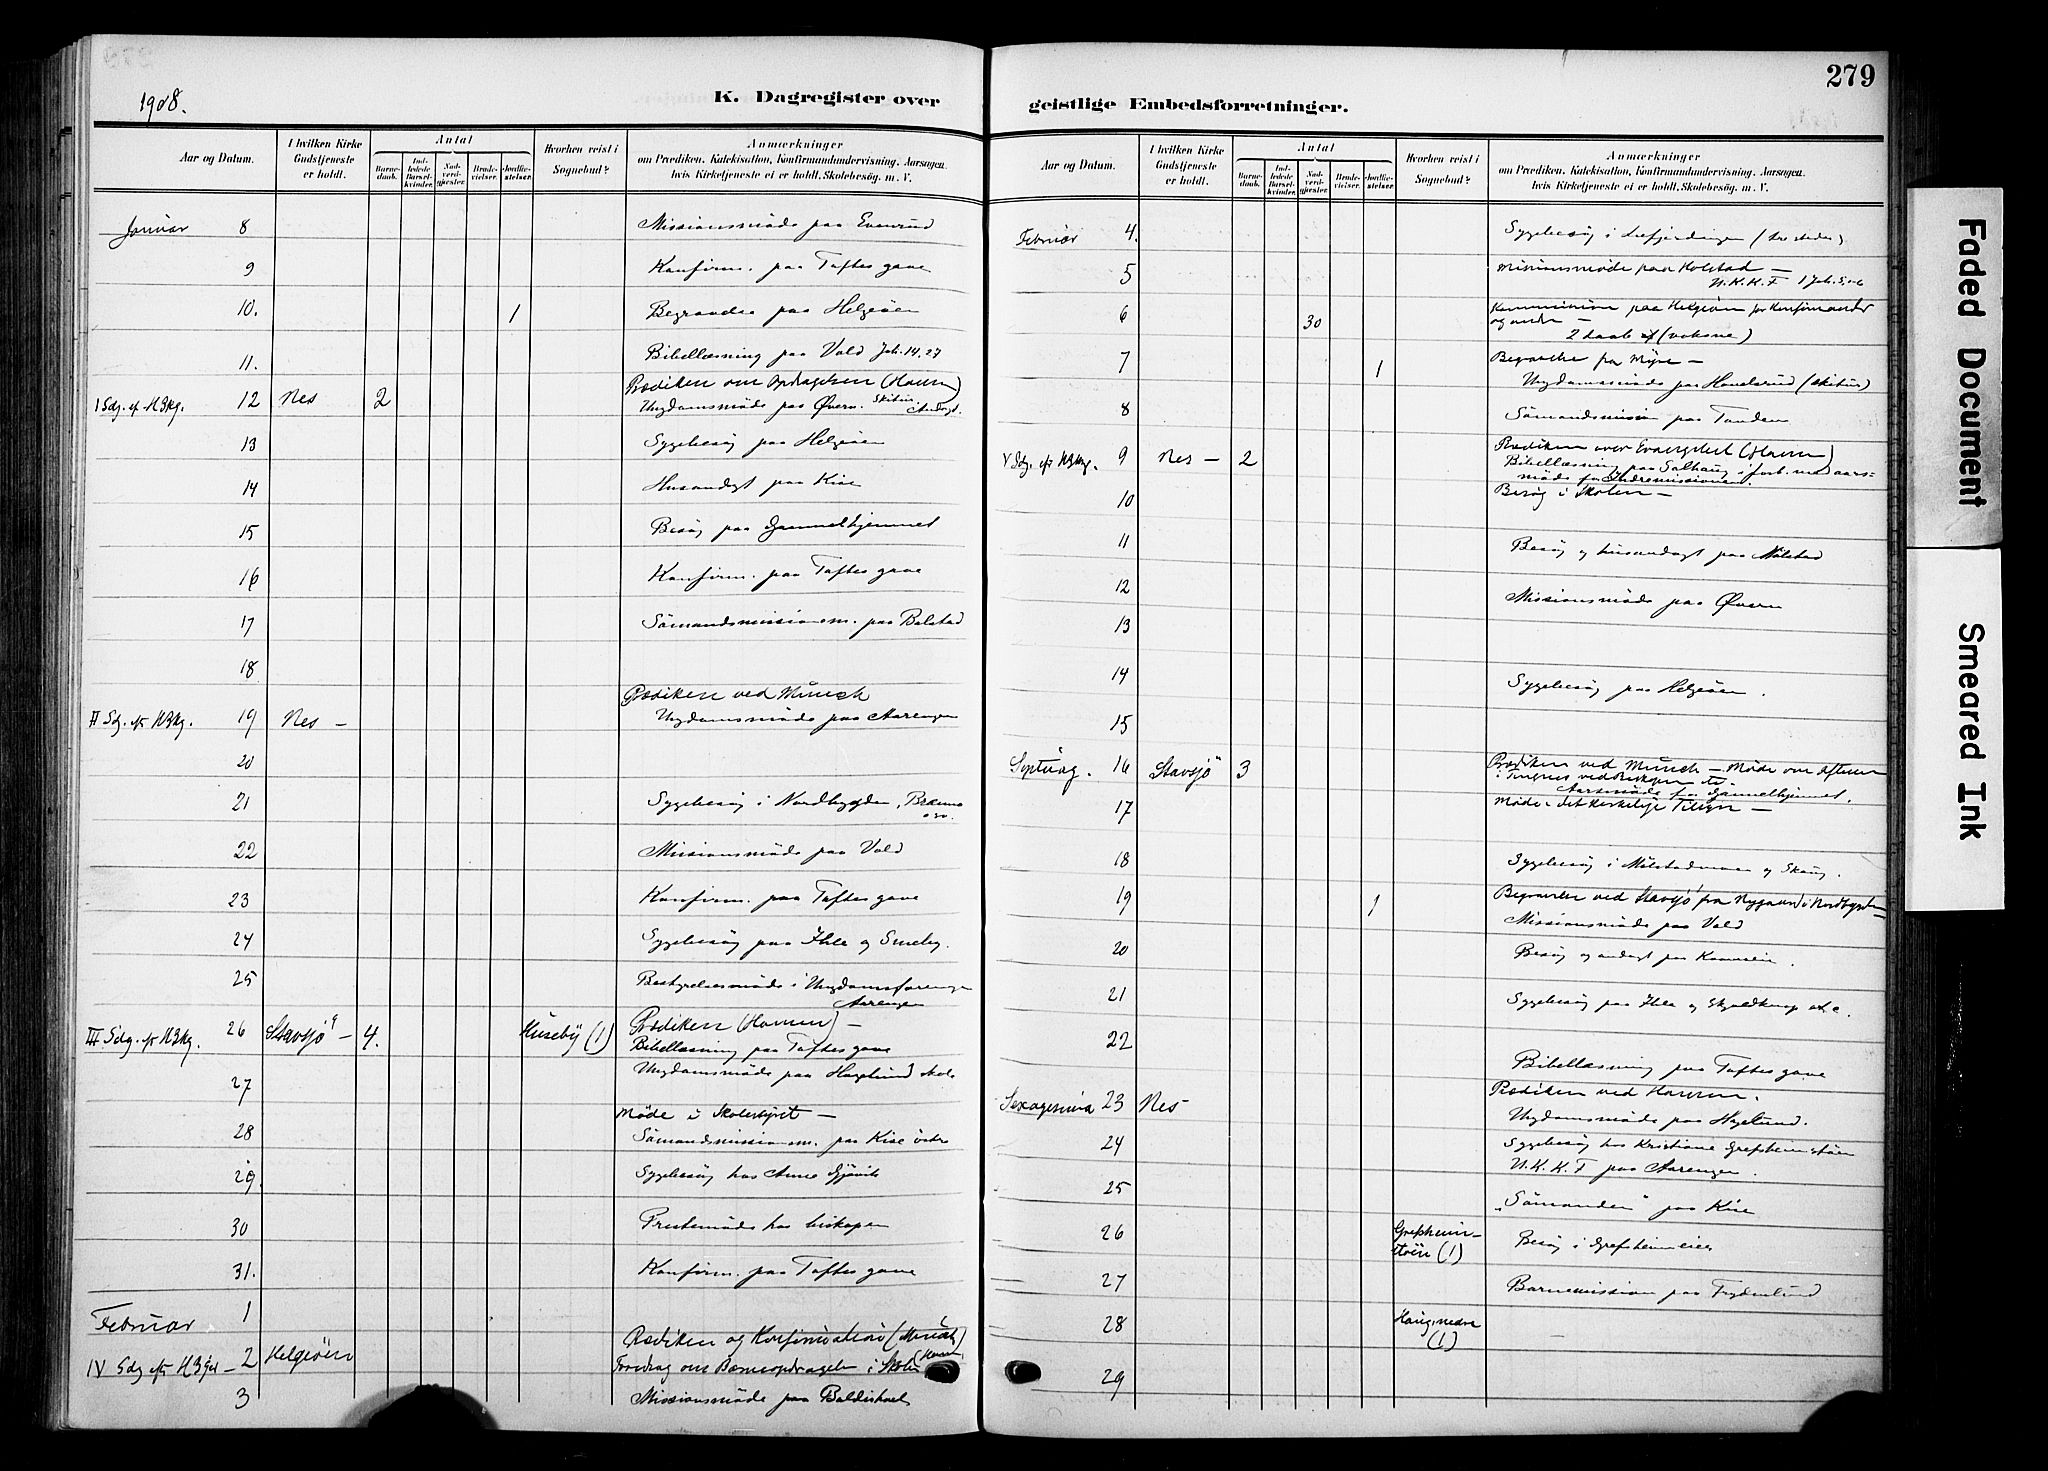 279
1908.
K. Dagregister over
geistlige Embedsforretninger.
Aar og Datum.
I hvilken Kirke Gudstjeneste er holdt.
Antal
Barnedaab.
Indledede Barselkvinder.
Nadverdgjester.
Brudevielser.
Jordfæstelser.
Hvorhen reist i Sognebud?
Anmærkninger
om Prædiken, Katekisation, Konfirmandundervisning, Aarsagen,
hvis Kirketjeneste ei er holdt, Skolebesøg, m. V.
Januar 8 Missionsmöde paa Evenrud
9 Konfirm. paa Toftes gave
10. 1 Begravelse paa Helgeöen
11. Bibellæsning paa Vold Joh. 14.27
I Sdg. ef. H3kg. 12 Nes 2 Prædiken om Opdragelsen (Hamm)
Ungdomsmöde paa Øvern.
13 Sygebesög paa Helgeöen
14 Husandagt paa Kise
15 Besög paa Gammelhjemmet
16 Konfirm. paa Toftes gave
17 Sömandsmissionsm. paa Balstad
18
II Sdg. ef. H3kg. 19 Nes – Prædiken ved Munch
Ungdomsmöde paa Aarengen
20
21 Sygebesög i Nordbygden,
22 Missionsmöde paa Vold
23 Konfirm. paa Toftes gave
24 Sygebesög paa Ihle og Smeby.
25 Bestyrelsesmöde i Ungdomsforeningen
Aarengen
III Sdg. ef. H3kg. 26 Stavsjö – 4. Huseby (1) Prædiken (Hamm) –
Bibellæsning paa Toftes gave
27 Ungdomsmöde paa Hagelund skole
Möde i Skolestyret –
28 Sömandsmissionsm. paa Kise östre
29. Sygebesög hos Anne Gjövik
30 Prestemöde hos biskopen
31. Konfirm. paa Toftes gave
Februar 1
IV Sdg ef. H3kg – 2 Helgeöen Prædiken og Konfirmation (Munch)
Foredrag om Barneopdragelse i Skolen
3 Missionsmöde paa Baldishoel
Aar og Datum.
I hvilken Kirke Gudstjeneste er holdt.
Antal
Barnedaab.
Indledede Barselkvinder.
Nadverdgjester.
Brudevielser.
Jordfæstelser.
Hvorhen reist i Sognebud?
Anmærkninger
om Prædiken, Katekisation, Konfirmandundervisning, Aarsagen,
hvis Kirketjeneste ei er holdt, Skolebesøg, m. V.
Februar 4. Sygebesög i
5 Missionsmöde paa Holstad –
N.K.K.F.
6 30 Kommunion paa Helgeöen for Konfirmander
og andre –
2 daab (voksne)
7 1 Begravelse fra Myre –
Ungdomsmöde paa
8 Sömandsmission paa Tanden
V Sdg. ef. H3kg. 9 Nes – 2 Prædiken over Evangeliet (Hamm)
Bibellæsning paa Solhaug i forb. med aars-
möde for Indremissionen.
10 Besög i Skolen –
11 Besög og husandagt paa Mölstad
12 Missionsmöde paa Øvern
13
14 Sygebesög paa Helgeöen.
15
Septuag. 16 Stavsjö 3 Prædiken ved Munch – Möde om aftenen
i Tingnes
Aarsmöde for Gammelhjemmet.
17 Möde i det kirkelige Tilsyn –
18 Sygebesög i og Skaug.
19 1 Begravelse ved Stavsjö fra Nygaard i Nordbygden
Missionsmöde paa Vold
20 Besög og andagt paa
21 Sygebesög paa Ihle og
22 Bibellæsning paa Toftes gave
Sexagesima 23 Nes – Prædiken ved Hamm.
Ungdomsmöde paa Hagelund.
24 Sygebesög hos Kristiane Grefsheimstöen
N.K.K.F paa Aarengen.
25 „Sömanden" paa Kise
26 Grefsheim-
stöen (1) Besög i Grefsheimeiet
27 Barnemission paa Frydenlund
28 Haug nedre
(1) —
29
Faded Document
Smeared Ink